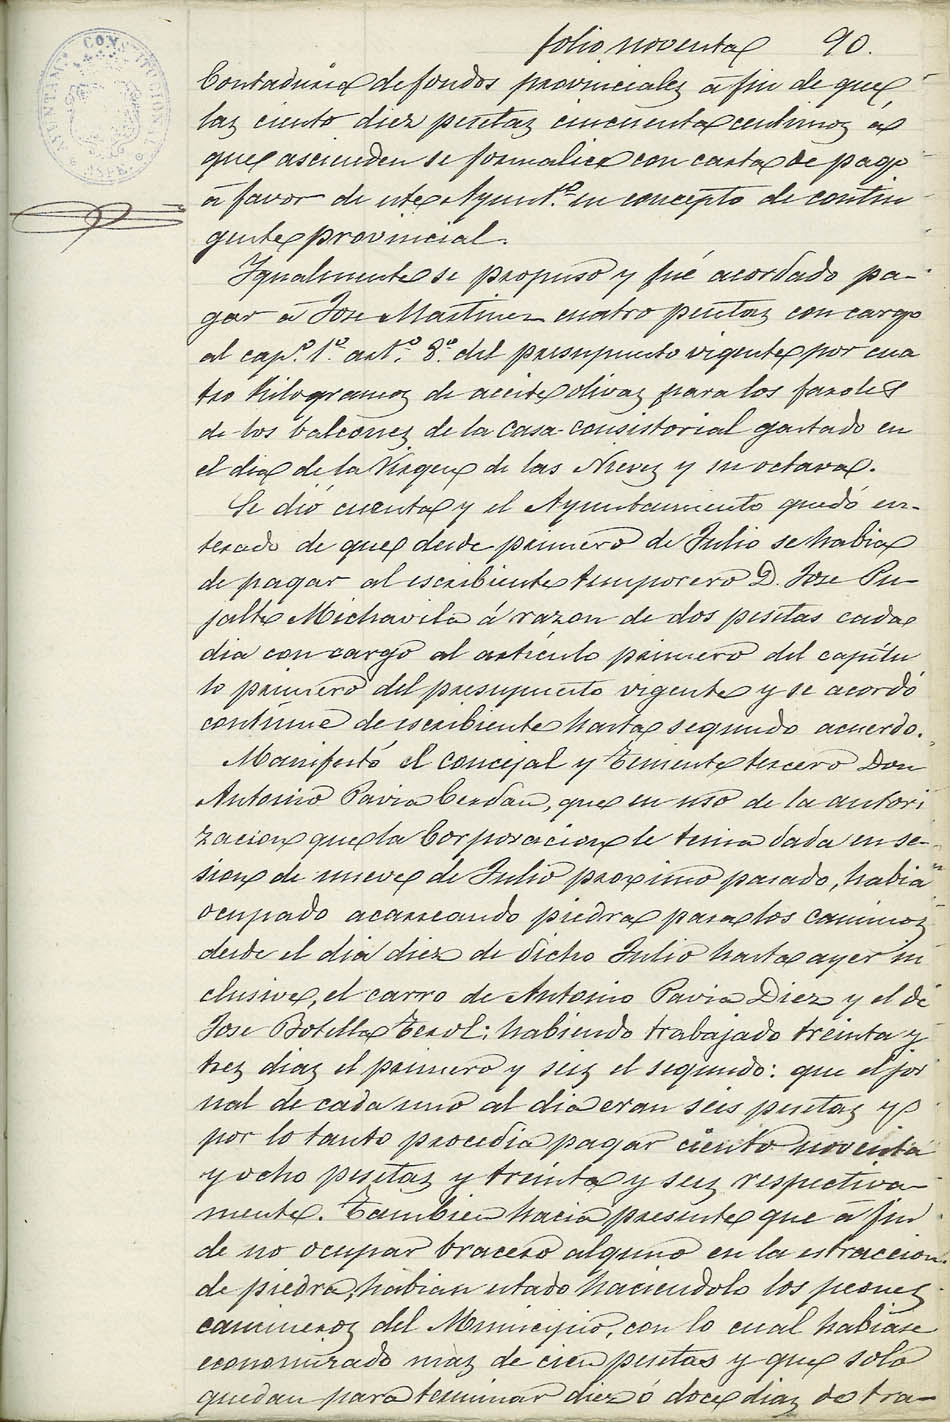 folio noventa 90.
AYUNTAM.º CONSTITUCIONAL
ASPE.
Contaduria de fondos provinciales á fin de que
las ciento diez pesetas cincuenta centimos á
que ascienden se formalice con carta de pago
á favor de este Ayunt.º en concepto de contin
gente provincial.
Igualmente se propuso y fué acordado pa-
gar á Jose Martinez cuatro pesetas con cargo
al cap.º 1.º art.º 8.º del presupuesto vigente por cua
tro kilogramos de aceite olivas para los faroles
de los balcones de la Casa-Consistorial gastado en
el dia de la Virgen de las Nieves y su octava.
Se dió cuenta y el Ayuntamiento quedó en-
terado de que desde primero de Julio se habia
de pagar al escribiente temporero D. Jose Pu-
jalte Michavila á razon de dos pesetas cada
dia con cargo al articulo primero del capitu
lo primero del presupuesto vigente y se acordó
continue de escribiente hasta segundo acuerdo.
Manifestó el concejal y Teniente tercero Don
Antonio Pavia Cerdan, que en uso de la autori
zacion que la Corporacion le tenia dada en se-
sion de nueve de Julio proximo pasado, habia
ocupado acarreando piedra para los caminos
desde el dia diez de dicho Julio hasta ayer in
clusive, el carro de Antonio Pavia Diez y el de
Jose Botella Terol: habiendo trabajado treinta y
tres dias el primero y seis el segundo: que el jor
nal de cada uno al dia eran seis pesetas y
por lo tanto procedia pagar ciento noventa
y ocho pesetas y treinta y seis respectiva-
mente. Tambien hacia presente que á fin
de no ocupar bracero alguno en la estraccion
de piedra, habian estado haciendolo los peones
camineros del Municipio, con lo cual habiase
economizado mas de cien pesetas y que solo
quedan para terminar diez ó doce dias de tra-